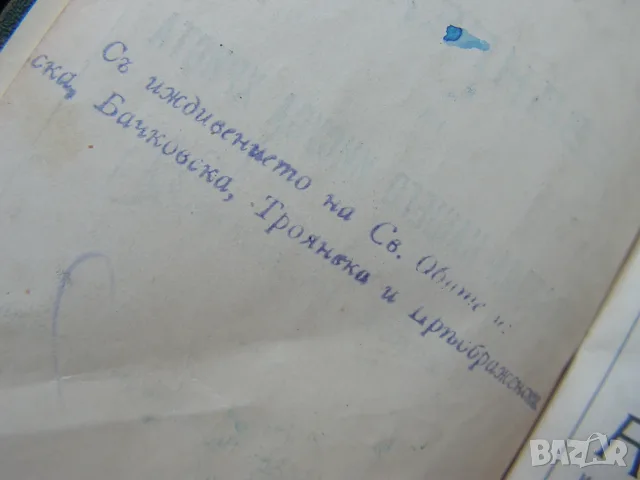 Съ иждивението на Св. Обите
ска, Бачковска, Троянска и преображенска
BAZAR